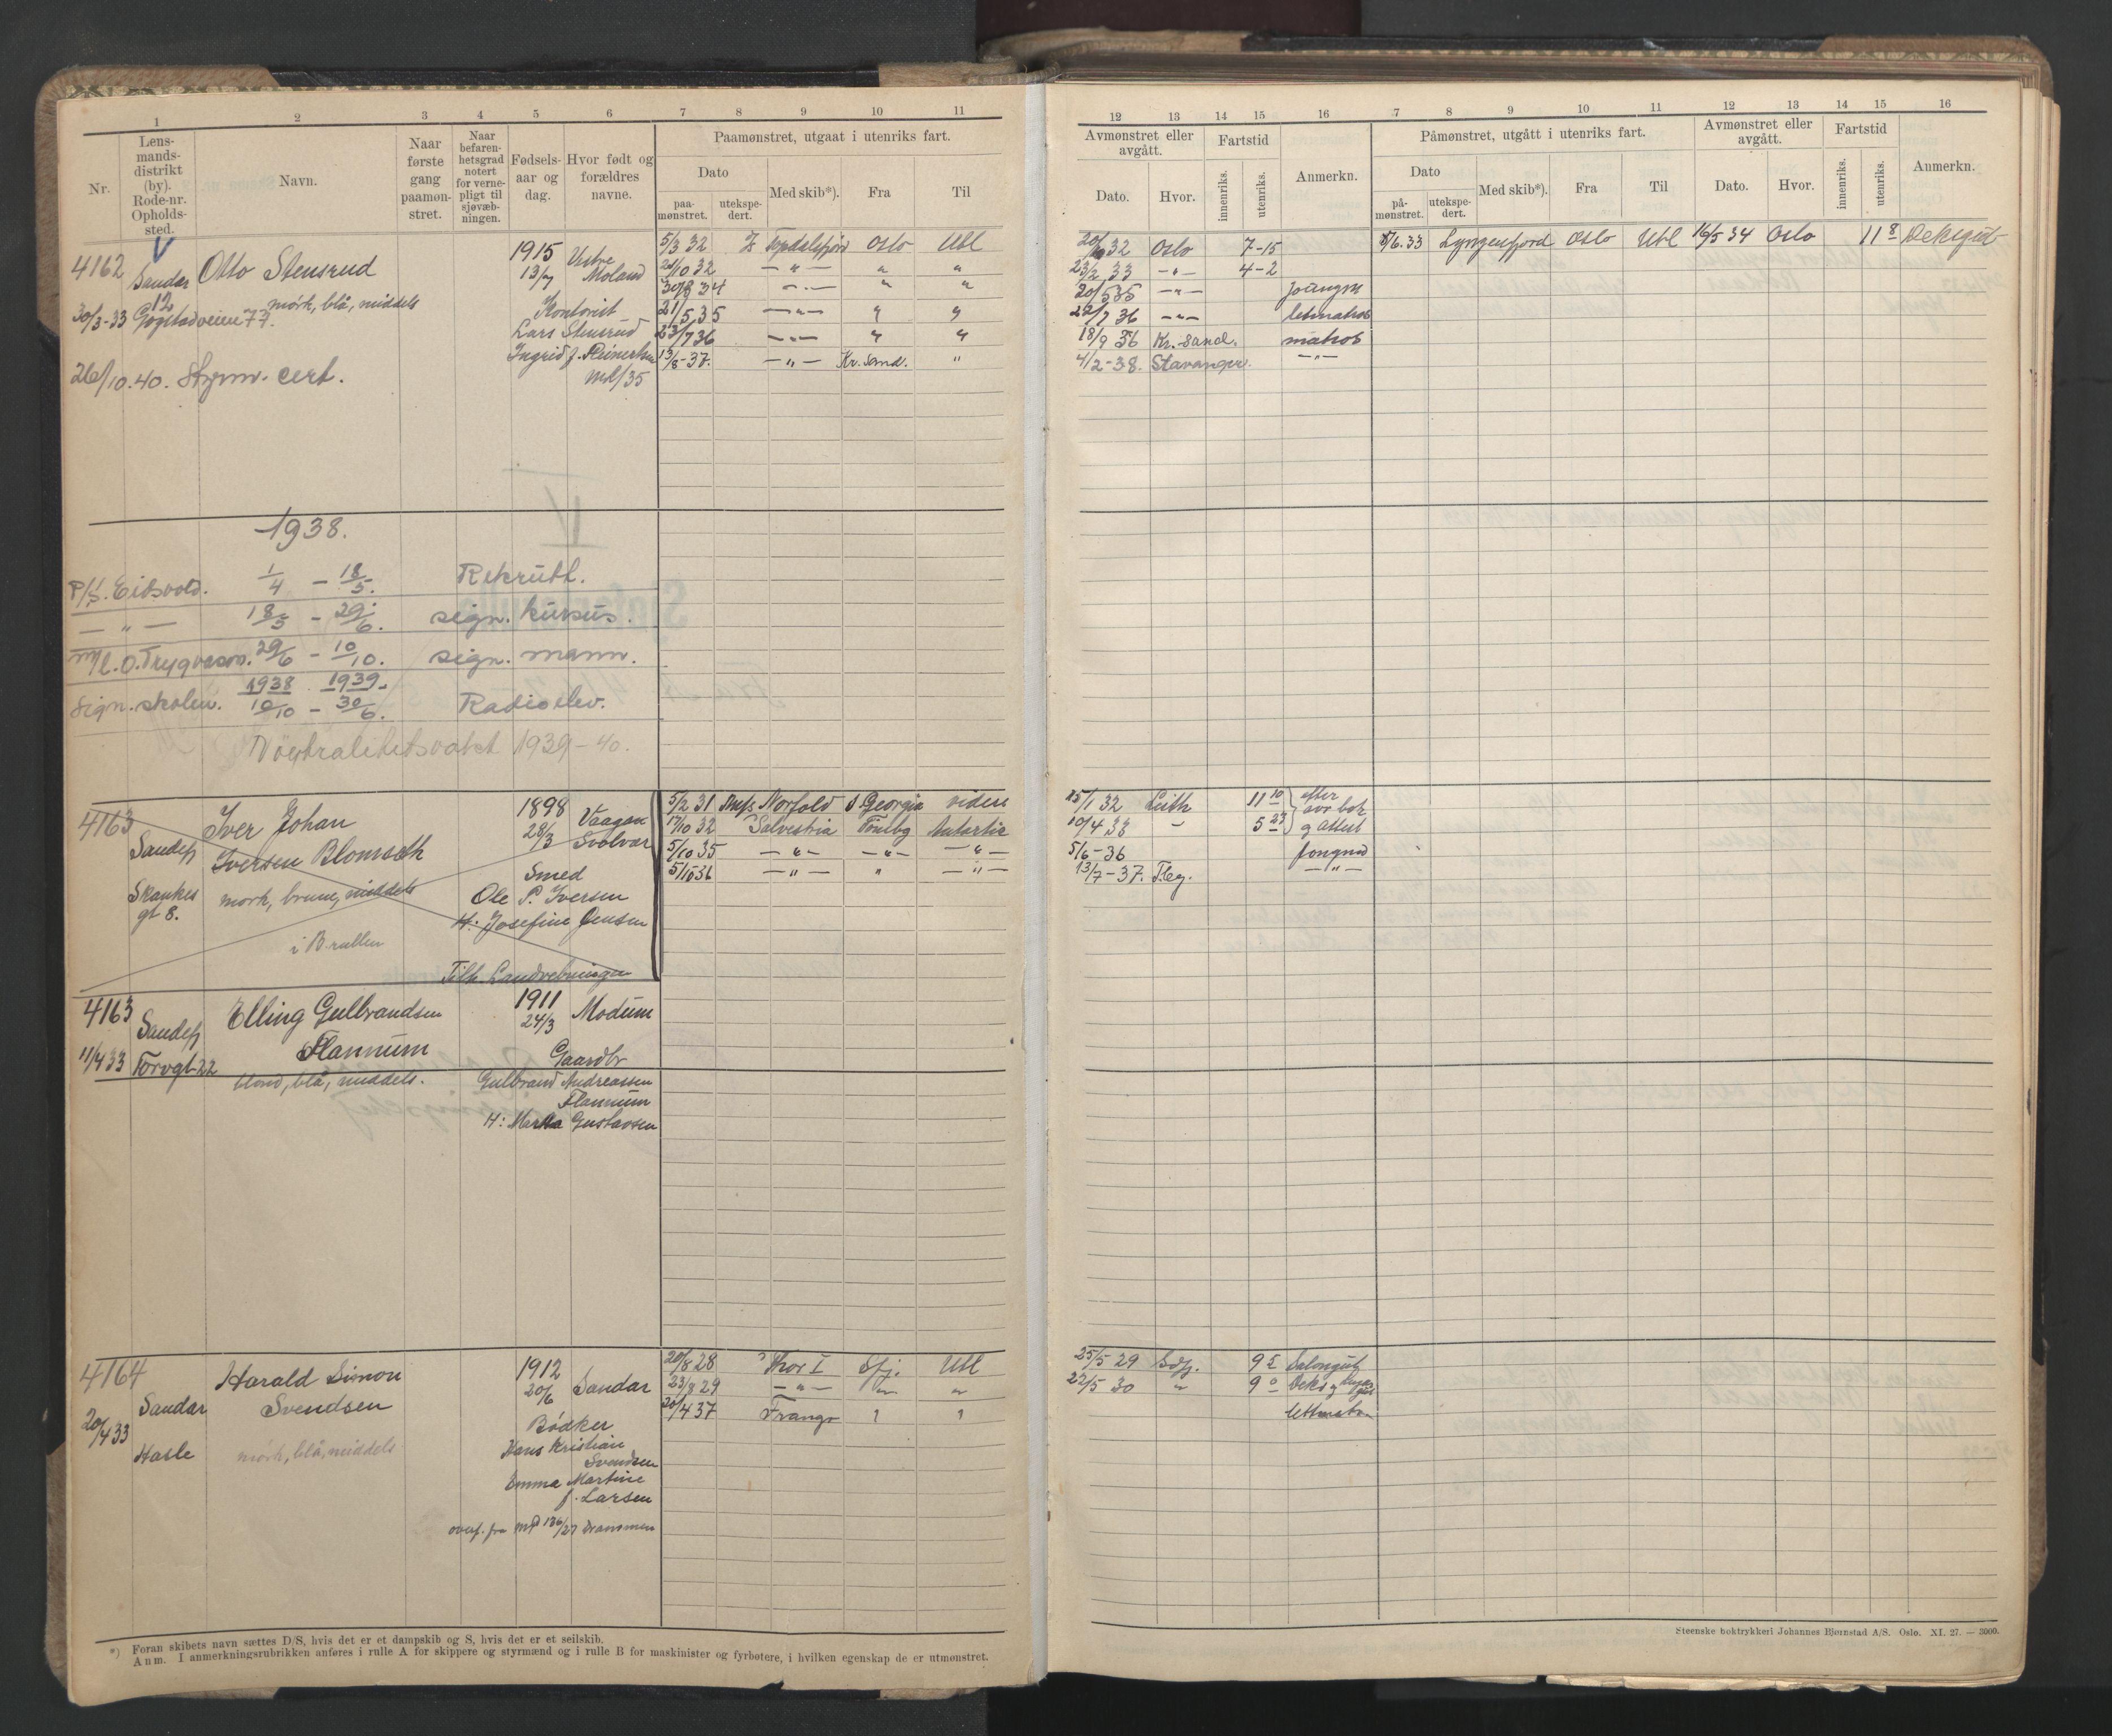 1 2 3 4 5 6 7 8 9 10 11
Nr.
Lens-
mands-
distrikt
(by).
Rode-nr.
Opholds-
sted.
Navn.
Naar
første
gang
paamøn-
stret.
Naar
befaren-
hetsgrad
notert
for verne-
pligt til
sjøvæb-
ningen.
Fødsels-
aar og
dag.
Hvor født og
forældres
navne.
Paamønstret, utgaat i utenriks fart.
Dato
paa-
mønstret.
utekspe-
dert.
Med skib*).
Fra
Til
4162 Sandar Otto Stensrud 1915 13/7 Vestre Moland
12
30/3-33 Gogstadveien 77. mørk, blå, middels
Kontorist
Lars Stensrud
Ingrid f.
26/10.40. Styrm. cert.
5/3 32 Topdalsfjord Oslo Utl
/10 32 — " — " "
34 — " — " "
21/5 35 — " — " "
23/7 36 — " — " "
13/8-37. — " — Kr. sand. "
1938.
P/S. Eidsvold. 1/4 - 18/5. Rekrutt.
— " — 18/5 - 29/6. sign. kursus.
M/l. O. Trygvason. 29/6 - 10/10. sign. mann.
Sign. skolen. 1938 10/10 - 1939 30/6. Radioelev.
Nøytralitetsvakt 1939-40.
4163 Iver Johan 1898 28/3 Vaagan Svolvær
Sandefj Iversen Blomseth
Skankes gt 8. mørk, brune, middels
Smed
Ole P. Iversen
H: Josefine Jensen
i B. rullen
Tilh. Landvebningen
5/2 31 Norfold S Georgia videre
17/10 32 Salvestria Tønsbg Antarctic
5/10 35 — " — — " — — " —
5/10 36 — " — " — " —
4163 Sandefj Elling Gulbrandsen 1911 24/3 Modum
Flannum
11/4 33 Torvgt 22 blond, blå, middels.
Gaardbr
Gulbrand Andreassen
Flannum
H: Martha Gustavsen
4164 Harald Simon 1912 20/6 Sandar
Sandar Svendsen
20/4 33
Hasle mørk, blå, middels
Bødker
Hans Kristian
Svendsen
Emma Martine
f. Larsen
overf. fra 136/27 Drammen
20/8 28 Thor I Sfj. Utl
23/8 29 — " — " "
20/4 37 Frango
*) Foran skibets navn sættes D/S, hvis det er et dampskib og S, hvis det er et seilskib.
Anm. I anmerkningsrubrikken anføres i rulle A for skippere og styrmænd og i rulle B for maskinister og fyrbøtere, i hvilken egenskap de er utmønstret.
12 13 14 15 16 7 8 9 10 11 12 13 14 15 16
Avmønstret eller
avgått.
Dato.
Hvor.
Fartstid
innenriks.
utenriks.
Anmerkn.
Påmønstret, utgått i utenriks fart.
Dato
på-
mønstret.
utekspe-
dert.
Med skib*).
Fra
Til
Avmønstret eller
avgått.
Dato.
Hvor.
Fartstid
innenriks.
utenriks.
Anmerkn.
32 Oslo 7-15 8/6.33 Lyngenfjord Oslo Utl 16/5 34 Oslo 11 8 Deksgut
23/2 33 — " — 4-2
20/5 35 — " — joungm
22/7 36 — " — letmatros
18/9 36 Kr. sand. matros
4/2-38. Stavanger. — " —
15/1 32 Leith 11 10 efter
10/4 33 " 5 23 & attest
5/6-36
13/7-37. — " —
25/5 29 Sdfj. 9 5 Salongut
22/5 30 " 9 0